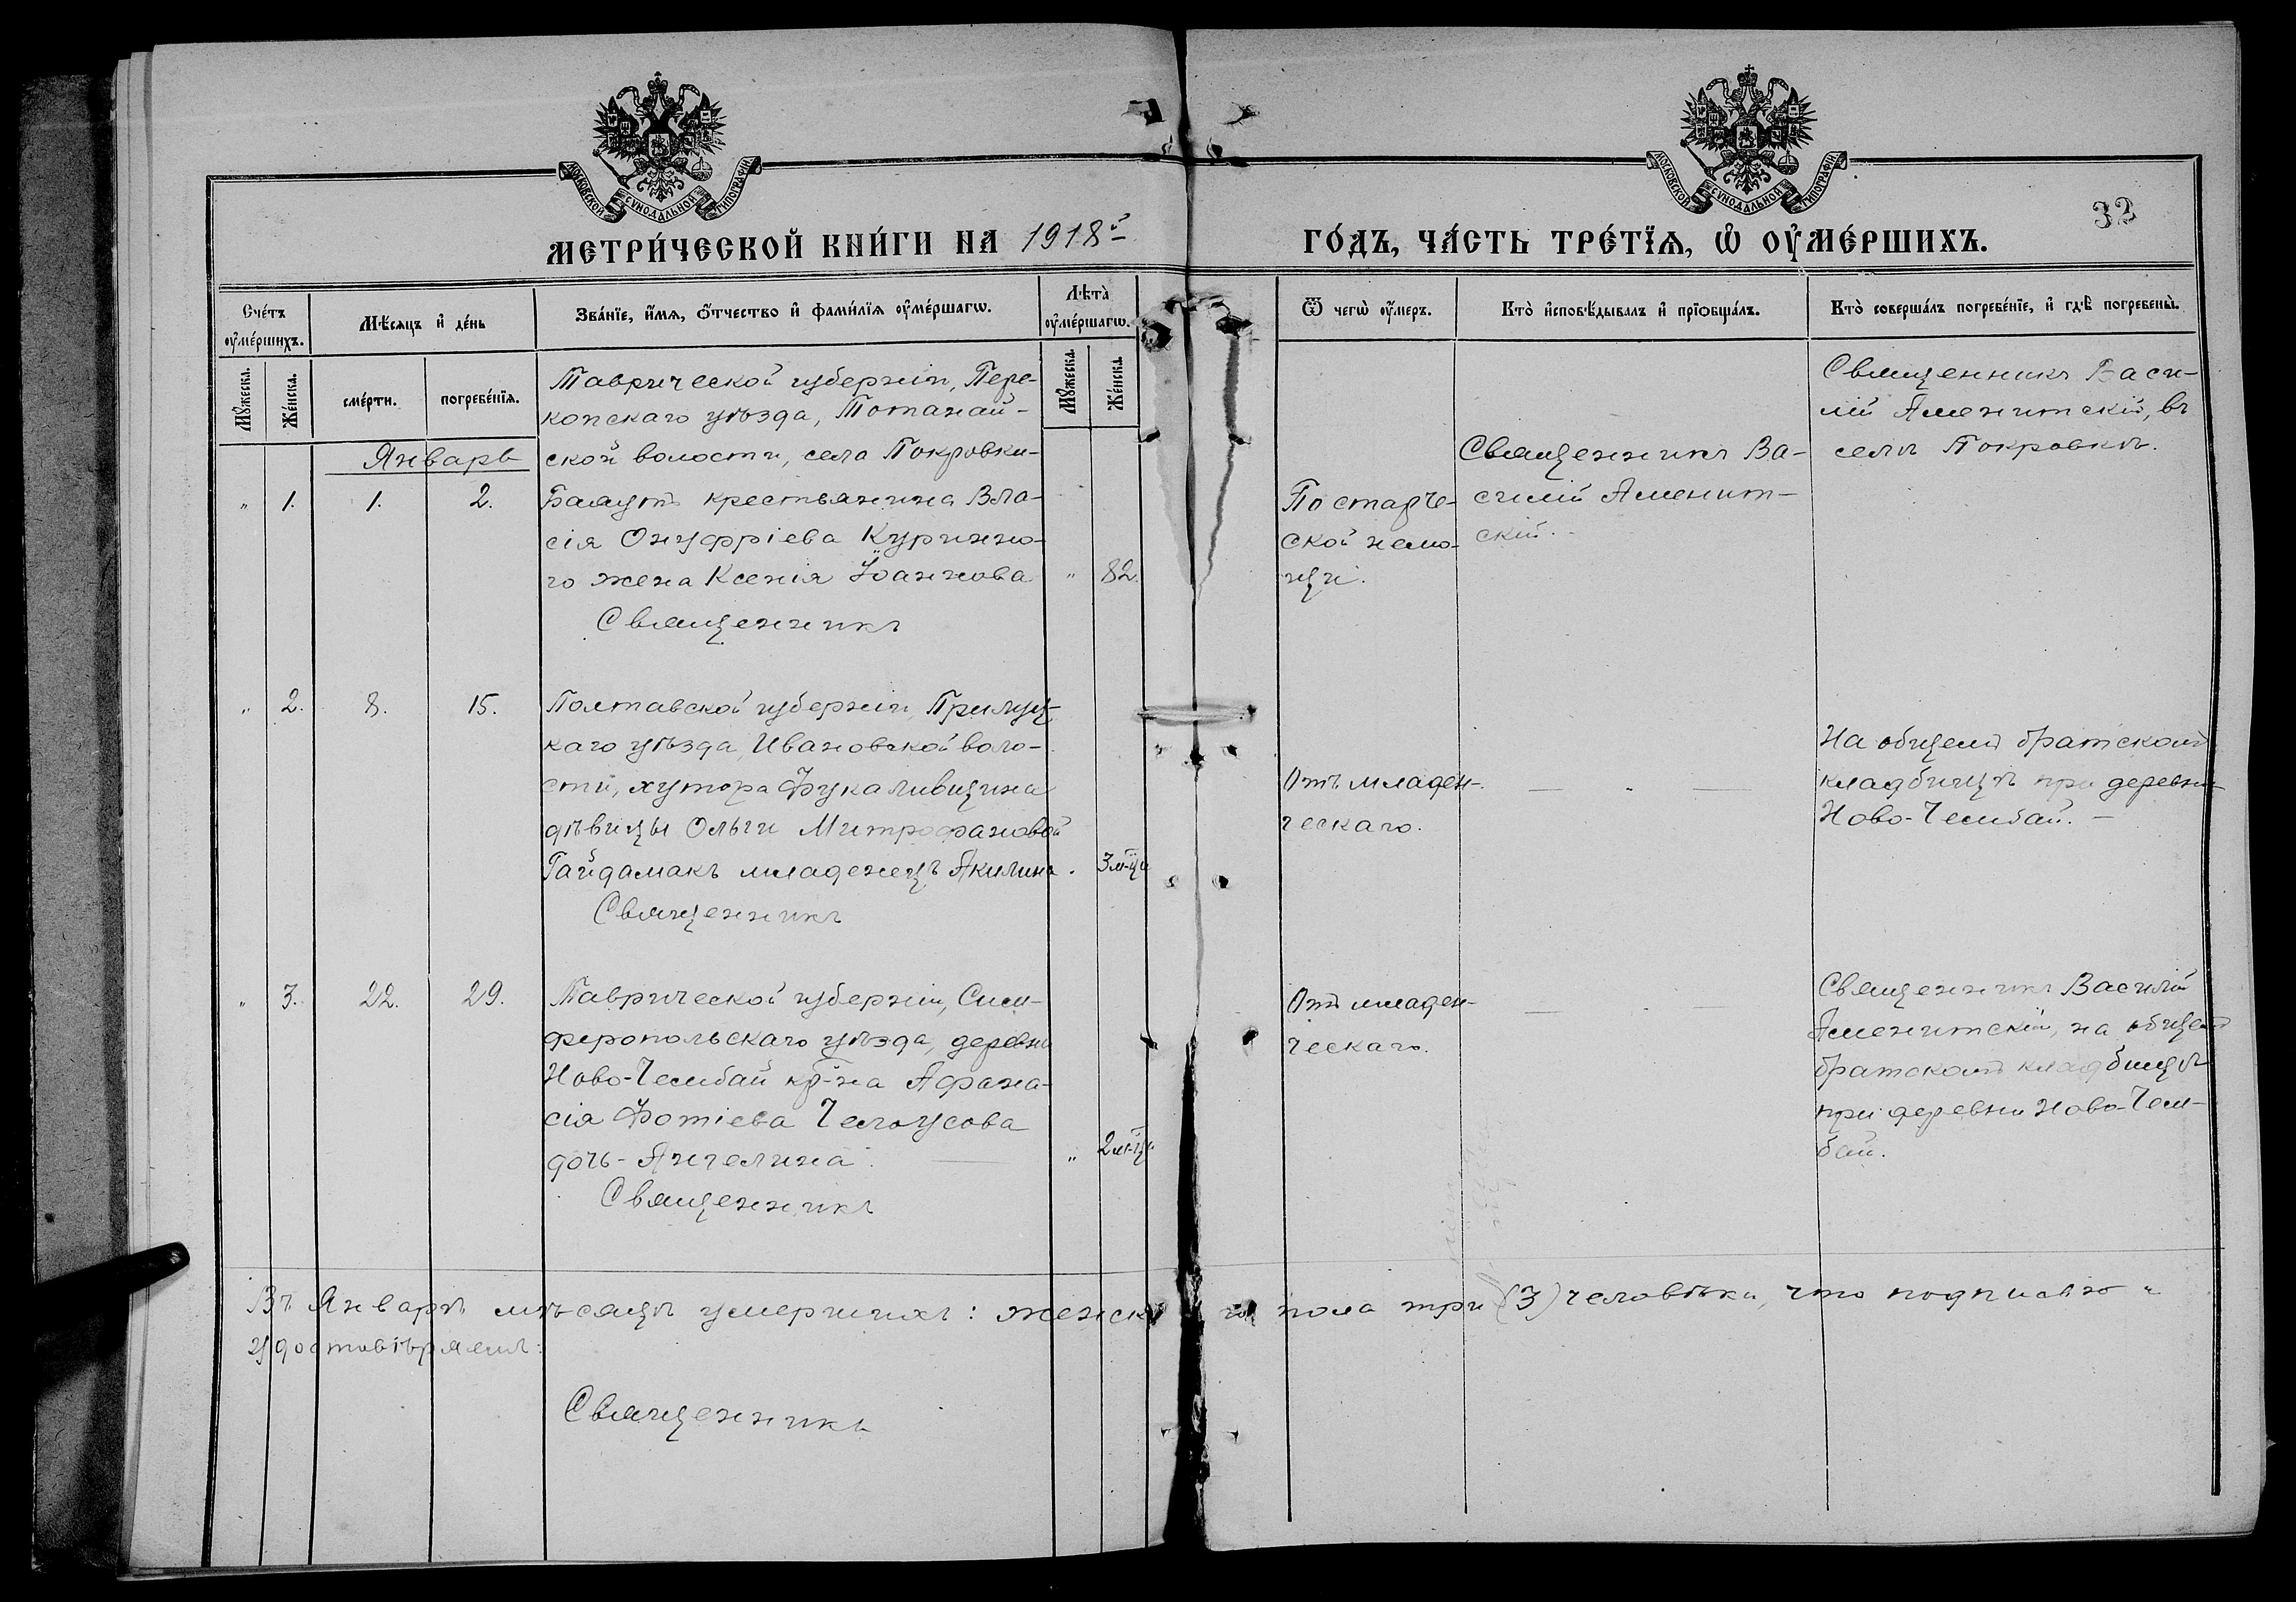 МОСКОВСКОЙ СѴНОДАЛЬНОЙ ТИПОГРАФІИ
МОСКОВСКОЙ СѴНОДАЛЬНОЙ ТИПОГРАФІИ
32
МЕТРИ́ЧЕСКОЙ КНИ́ГИ НА 1918й
ГО́ДЪ, ЧА́СТЬ ТРЕ́ТІѦ, Ѡ҆ ОУ҆МЕ́РШИХЪ.
Сче́тъ оу҆ме́ршихъ.
Мѣ́сяцъ и҆ де́нь
Зва́нїе, и҆́мѧ, ѻ҆́тчество и҆ фами́лїѧ оу҆ме́ршагѡ.
Лѣта̀ оу҆ме́ршагѡ.
Ѿ чегѡ̀ оу҆́меръ.
Кто̀ и҆сповѣ́дывалъ и҆ прїѻбща́лъ.
Кто̀ соверша́лъ погребе́нїе, и҆ гдѣ̀ погребены̀.
Мꙋ́жеска.
Же́нска.
сме́рти.
погребе́нїѧ.
Мꙋ́жеска.
Же́нска.
Январь
" 1. 1. 2.
Таврической губерніи, Пере-
копскаго уѣзда, Тотанай-
ской волости, села Покровки-
Баяутъ крестьянина Вла-
сія Онуфріева Куринно-
го жена Ксенія Іоаннова
" 82.
Священникъ
По старче-
ской немо-
щи.
Священникъ Ва-
силій Аменит-
скій.
Священникъ Васи-
лій Аменитскій, въ
селѣ Покровкѣ.
" 2. 8. 15.
Полтавской губерніи, Прилуц-
каго уѣзда, Ивановской воло-
сти, хутора Фукаливщина
дѣвицы Ольги Митрофановой
Гайдамакъ младенецъ Акилина.
3 м-ца
Священникъ
Отъ младен-
ческаго.
На общемъ братскомъ
кладбищѣ при деревни
Ново-Чембай.
" 3. 22. 29.
Таврической губерніи, Сим-
феропольскаго уѣзда, деревни
Ново-Чембай кр-на Афана-
сія Фотіева
дочь - Ангелина.
" 2 м-ца
Священникъ
Отъ младен-
ческаго.
Священникъ Василій
Аменитскій, на общемъ
братскомъ кладбищѣ
при деревни Ново-Чем-
бай.
Въ Январѣ мѣсяцѣ умершихъ: женскаго пола три (3) человѣка, что подписью и
удостовѣряемъ:
Священникъ